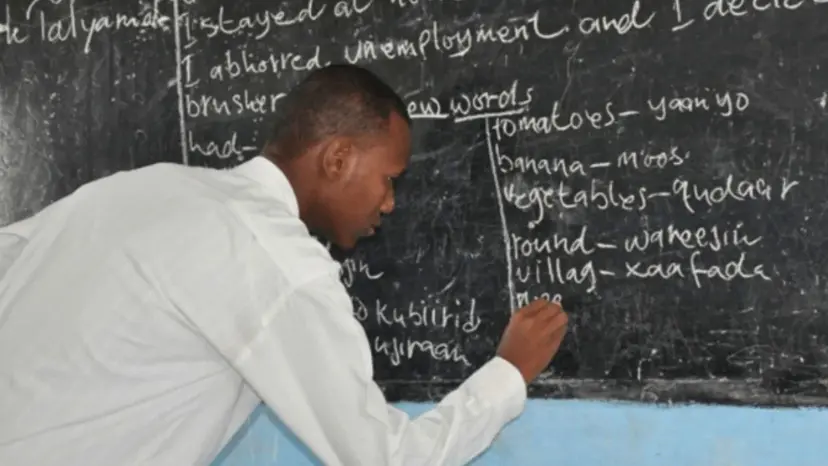 Talyamak
I stayed at
I abhorred unemployment and I deci
brusher
ew words
had-
tomatoes- yaaniyo
banana- moos.
vegetables- qudaar
round- wareesin
villag- xaafada
kubiirid
ujiraan